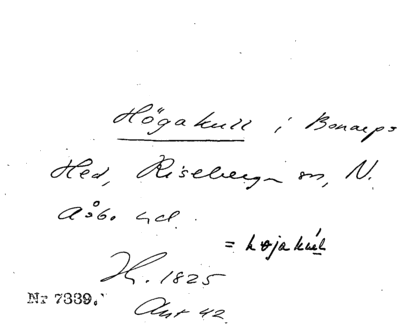 Högakull i Bonarps
Hed, Riseberga sn, N.
Åsbo hd.
= högakúll
H. 1825
Nr 7339.
Ant 42